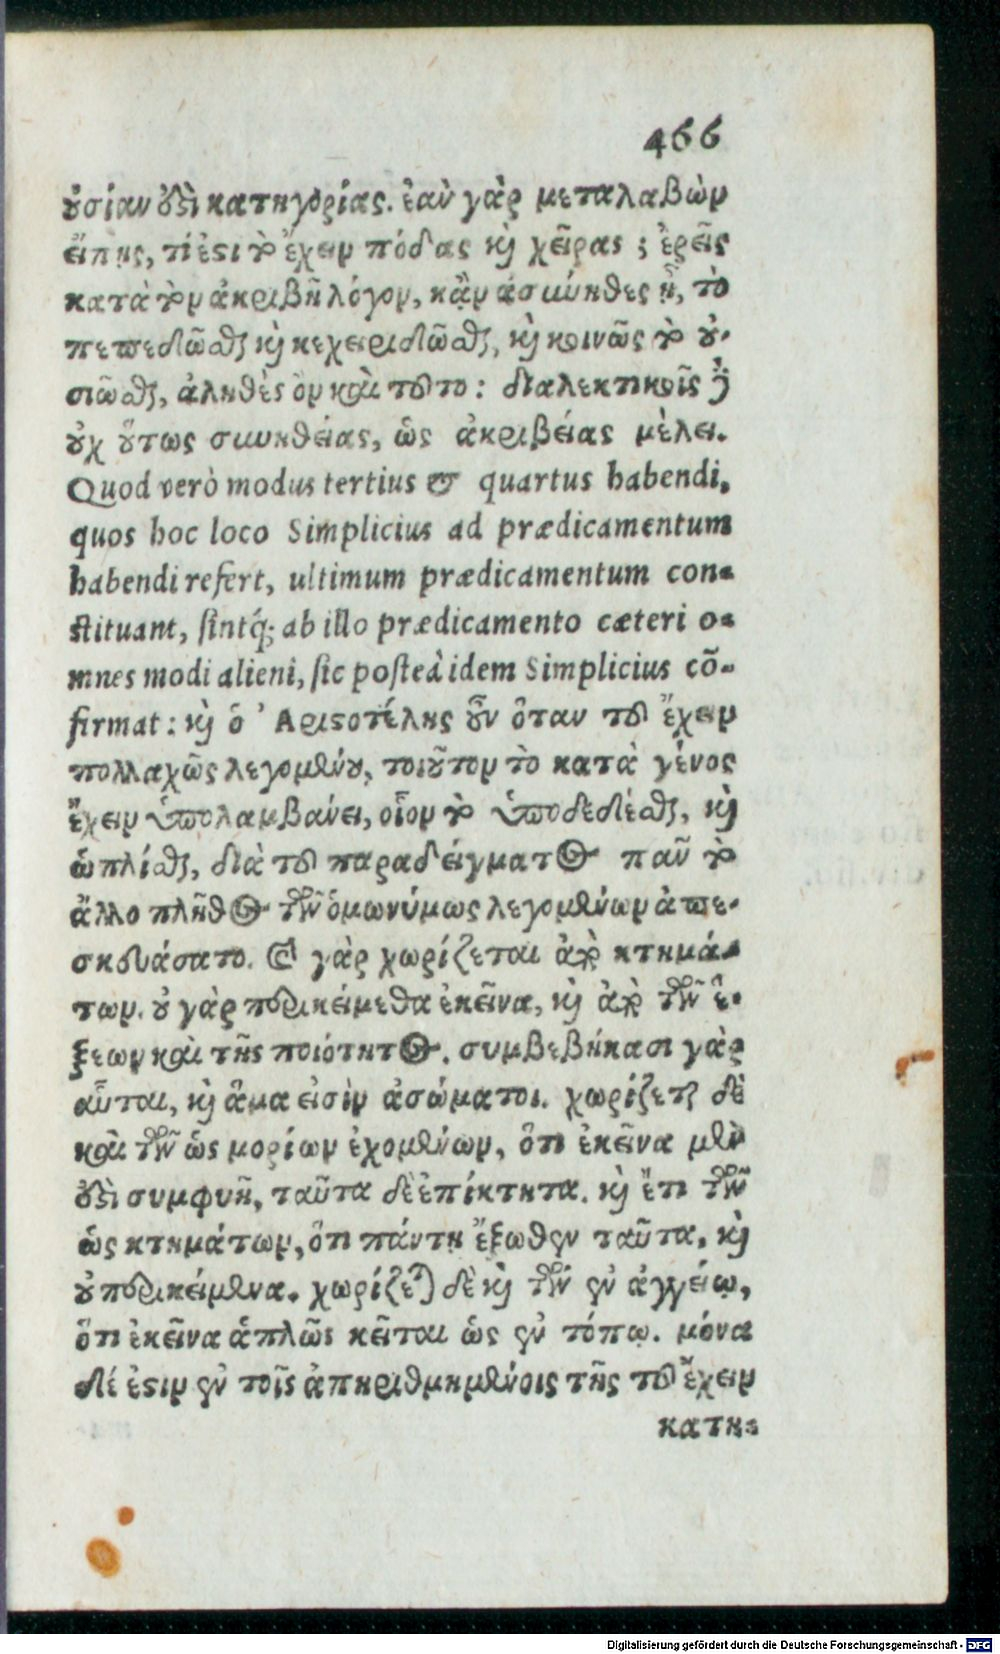 466
οὐσίαν ὅξι κατηγορίας. ἐὰν γὰρ μεταλαβὼν
εἴπῃς, τί ἐστι τὸ ἔχειν πόδας καὶ χεῖρας; ἐρεῖς
κατὰ τὸν ἀκριβῆ λόγον, κἂν ἀσυνηθες ᾖ, τὸ
πεπεδιῶσθαι καὶ κεχειριδιῶσθαι, καὶ κοινῶς τὸ οὐ-
σιῶσθαι, ἀληθὲς ὂν καὶ τοῦτο: διαλεκτικοῖς δὲ
οὐχ οὕτως συνηθείας, ὡς ἀκριβείας μέλει.
Quod verò modus tertius & quartus habendi,
quos hoc loco Simplicius ad prædicamentum
habendi refert, ultimum prædicamentum con-
stituant, sintq́; ab illo prædicamento cæteri o-
mnes modi alieni, sic posteà idem Simplicius cō-
firmat: καὶ ὁ Ἀριστοτέλης οὖν ὅταν τοῦ ἔχειν
πολλαχῶς λεγομένου, τοιοῦτον τὸ κατὰ γένος
ἔχειν ὑπολαμβάνει, οἷον τὸ ὑποδεδέσθαι, καὶ
ὡπλίσθαι, διὰ τοῦ παραδείγματος πᾶν τὸ
ἄλλο πλῆθος τῶν ὁμωνύμως λεγομένων ἀπε-
σκευάσατο. καὶ γὰρ χωρίζεται ἀπὸ κτημά-
των. οὐ γὰρ περικείμεθα ἐκεῖνα, καὶ ἀπὸ τῶν ἕ-
ξεων καὶ τῆς ποιότητος. συμβεβήκασι γὰρ
αὗται, καὶ ἅμα εἰσὶν ἀσώματοι. χωρίζεται δὲ
καὶ τῶν ὡς μορίων ἐχομένων, ὅτι ἐκεῖνα μὲν
ἐστὶ συμφυῆ, ταῦτα δὲ ἐπίκτητα. καὶ ἔτι τῶν
ὡς κτημάτων, ὅτι πάντη ἔξωθεν ταῦτα, καὶ
οὐ περικείμενα. χωρίζεται δὲ καὶ τῶν ἐν ἀγγείῳ,
ὅτι ἐκεῖνα ἁπλῶς κεῖται ὡς ἐν τόπῳ. μόνα
δέ ἐστιν ἐν τοῖς ἀπηριθμημένοις τῆς τοῦ ἔχειν
κατη-
Digitalisierung gefördert durch die Deutsche Forschungsgemeinschaft - DFG